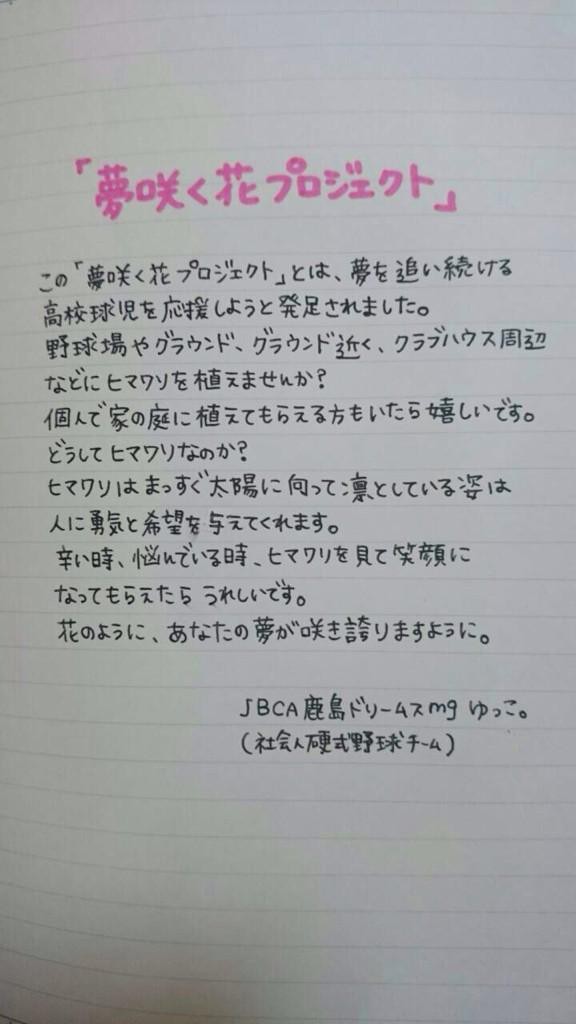 「夢咲く花プロジェクト」
この「夢咲く花プロジェクト」とは、夢を追い続ける
高校球児を応援しようと発足されました。
野球場やグラウンド、グラウンド近く、クラブハウス周辺
などにヒマワリを植えませんか?
個人で家の庭に植えてもらえる方もいたら嬉しいです。
どうしてヒマワリなのか?
ヒマワリはまっすぐ太陽に向って凛としている姿は
人に勇気と希望を与えてくれます。
辛い時、悩んでいる時、ヒマワリを見て笑顔に
なってもらえたらうれしいです。
花のように、あなたの夢が咲き誇りますように。
JBCA鹿島ドリームスmgゆっこ。
(社会人硬式野球チーム)